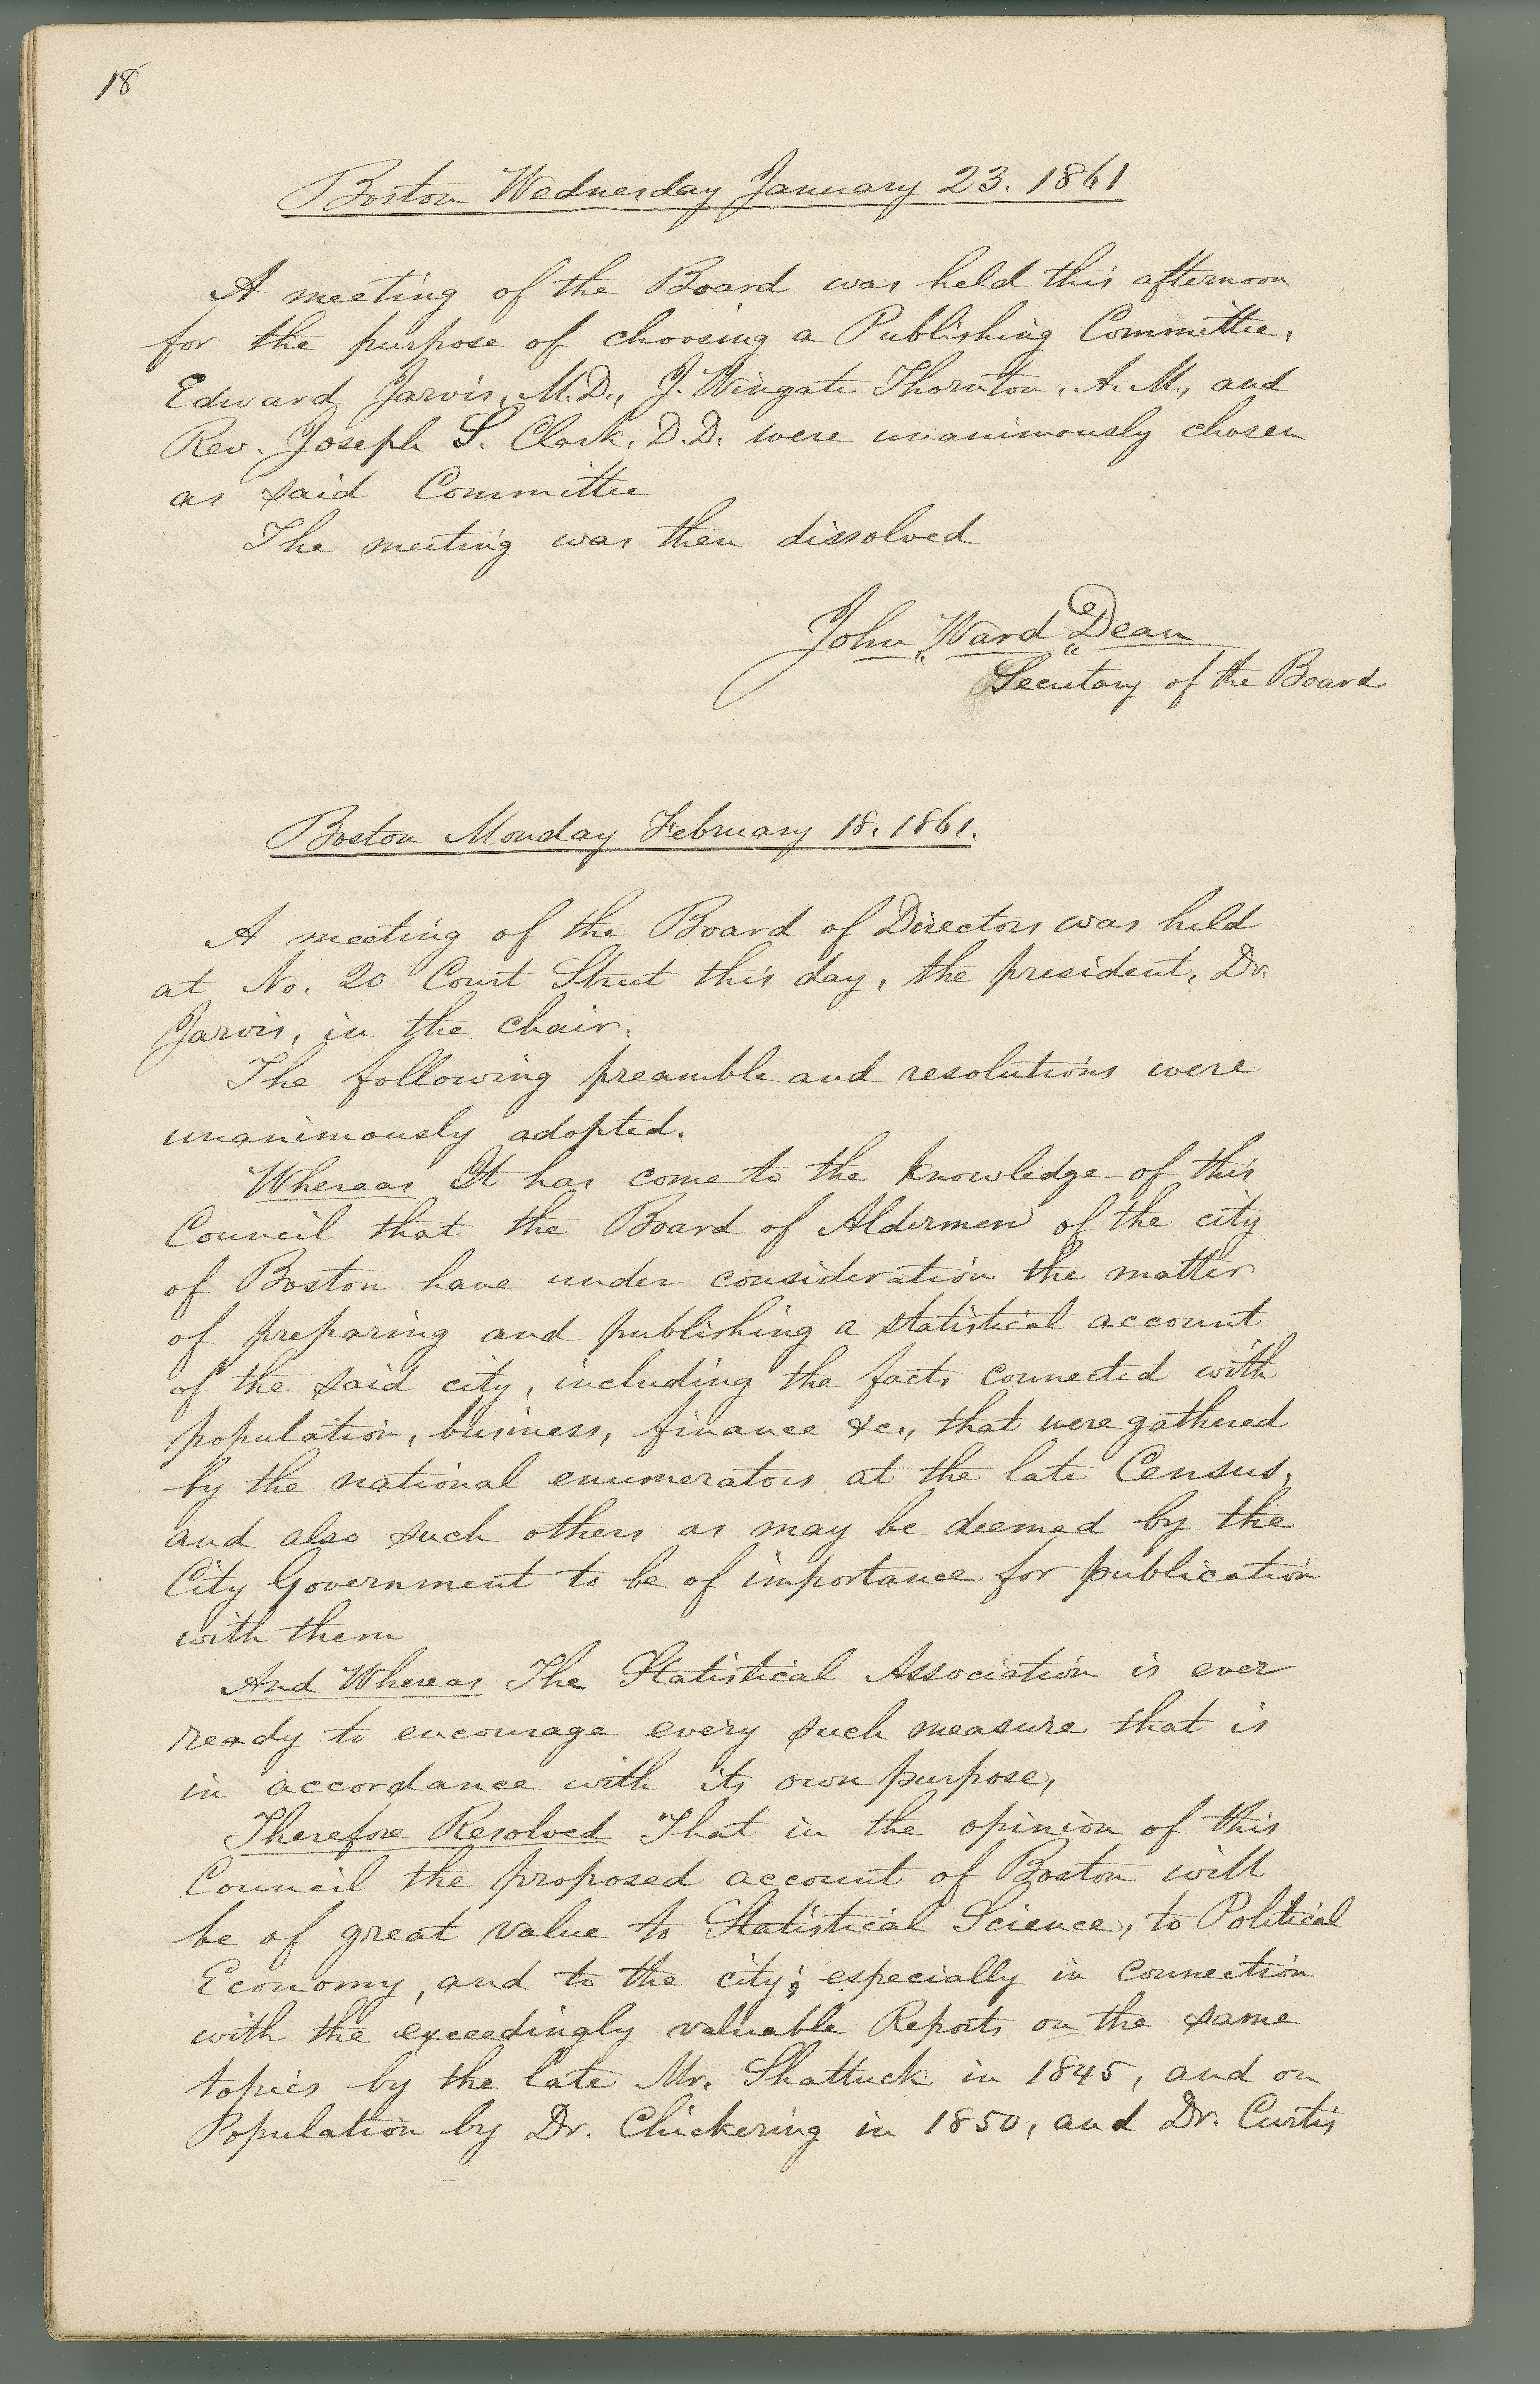 18
Boston Wednesday January 23. 1861
A meeting of the Board was held this afternoon
for the purpose of choosing a Publishing Committee.
Edward Jarvis, M.D., J. Wingate Thornton, A.M., and
Rev. Joseph S. Clark, D.D. were unanimously chosen
as said Committee
The meeting was then dissolved
John Ward Dean
Secretary of the Board
Boston Monday February 18. 1861.
A meeting of the Board of Directors was held
at No. 20 Court Street this day, the president, Dr.
Jarvis, in the chair.
The following preamble and resolutions were
unanimously adopted.
Whereas It has come to the knowledge of this
Council that the Board of Aldermen of the city
of Boston have under consideration the matter
of preparing and publishing a statistical account
of the said city, including the facts connected with
population, business, finance &c., that were gathered
by the national enumerators at the late Census,
and also such others as may be deemed by the
City Government to be of importance for publication
with them
And Whereas The Statistical Association is ever
ready to encourage every such measure that is
in accordance with its own purpose,
Therefore Resolved That in the opinion of this
Council the proposed account of Boston will
be of great value to Statistical Science, to Political
Economy, and to the city; especially in connection
with the exceedingly valuable Reports on the same
topics by the late Mr. Shattuck in 1845, and on
Population by Dr. Chickering in 1850, and Dr. Curtis